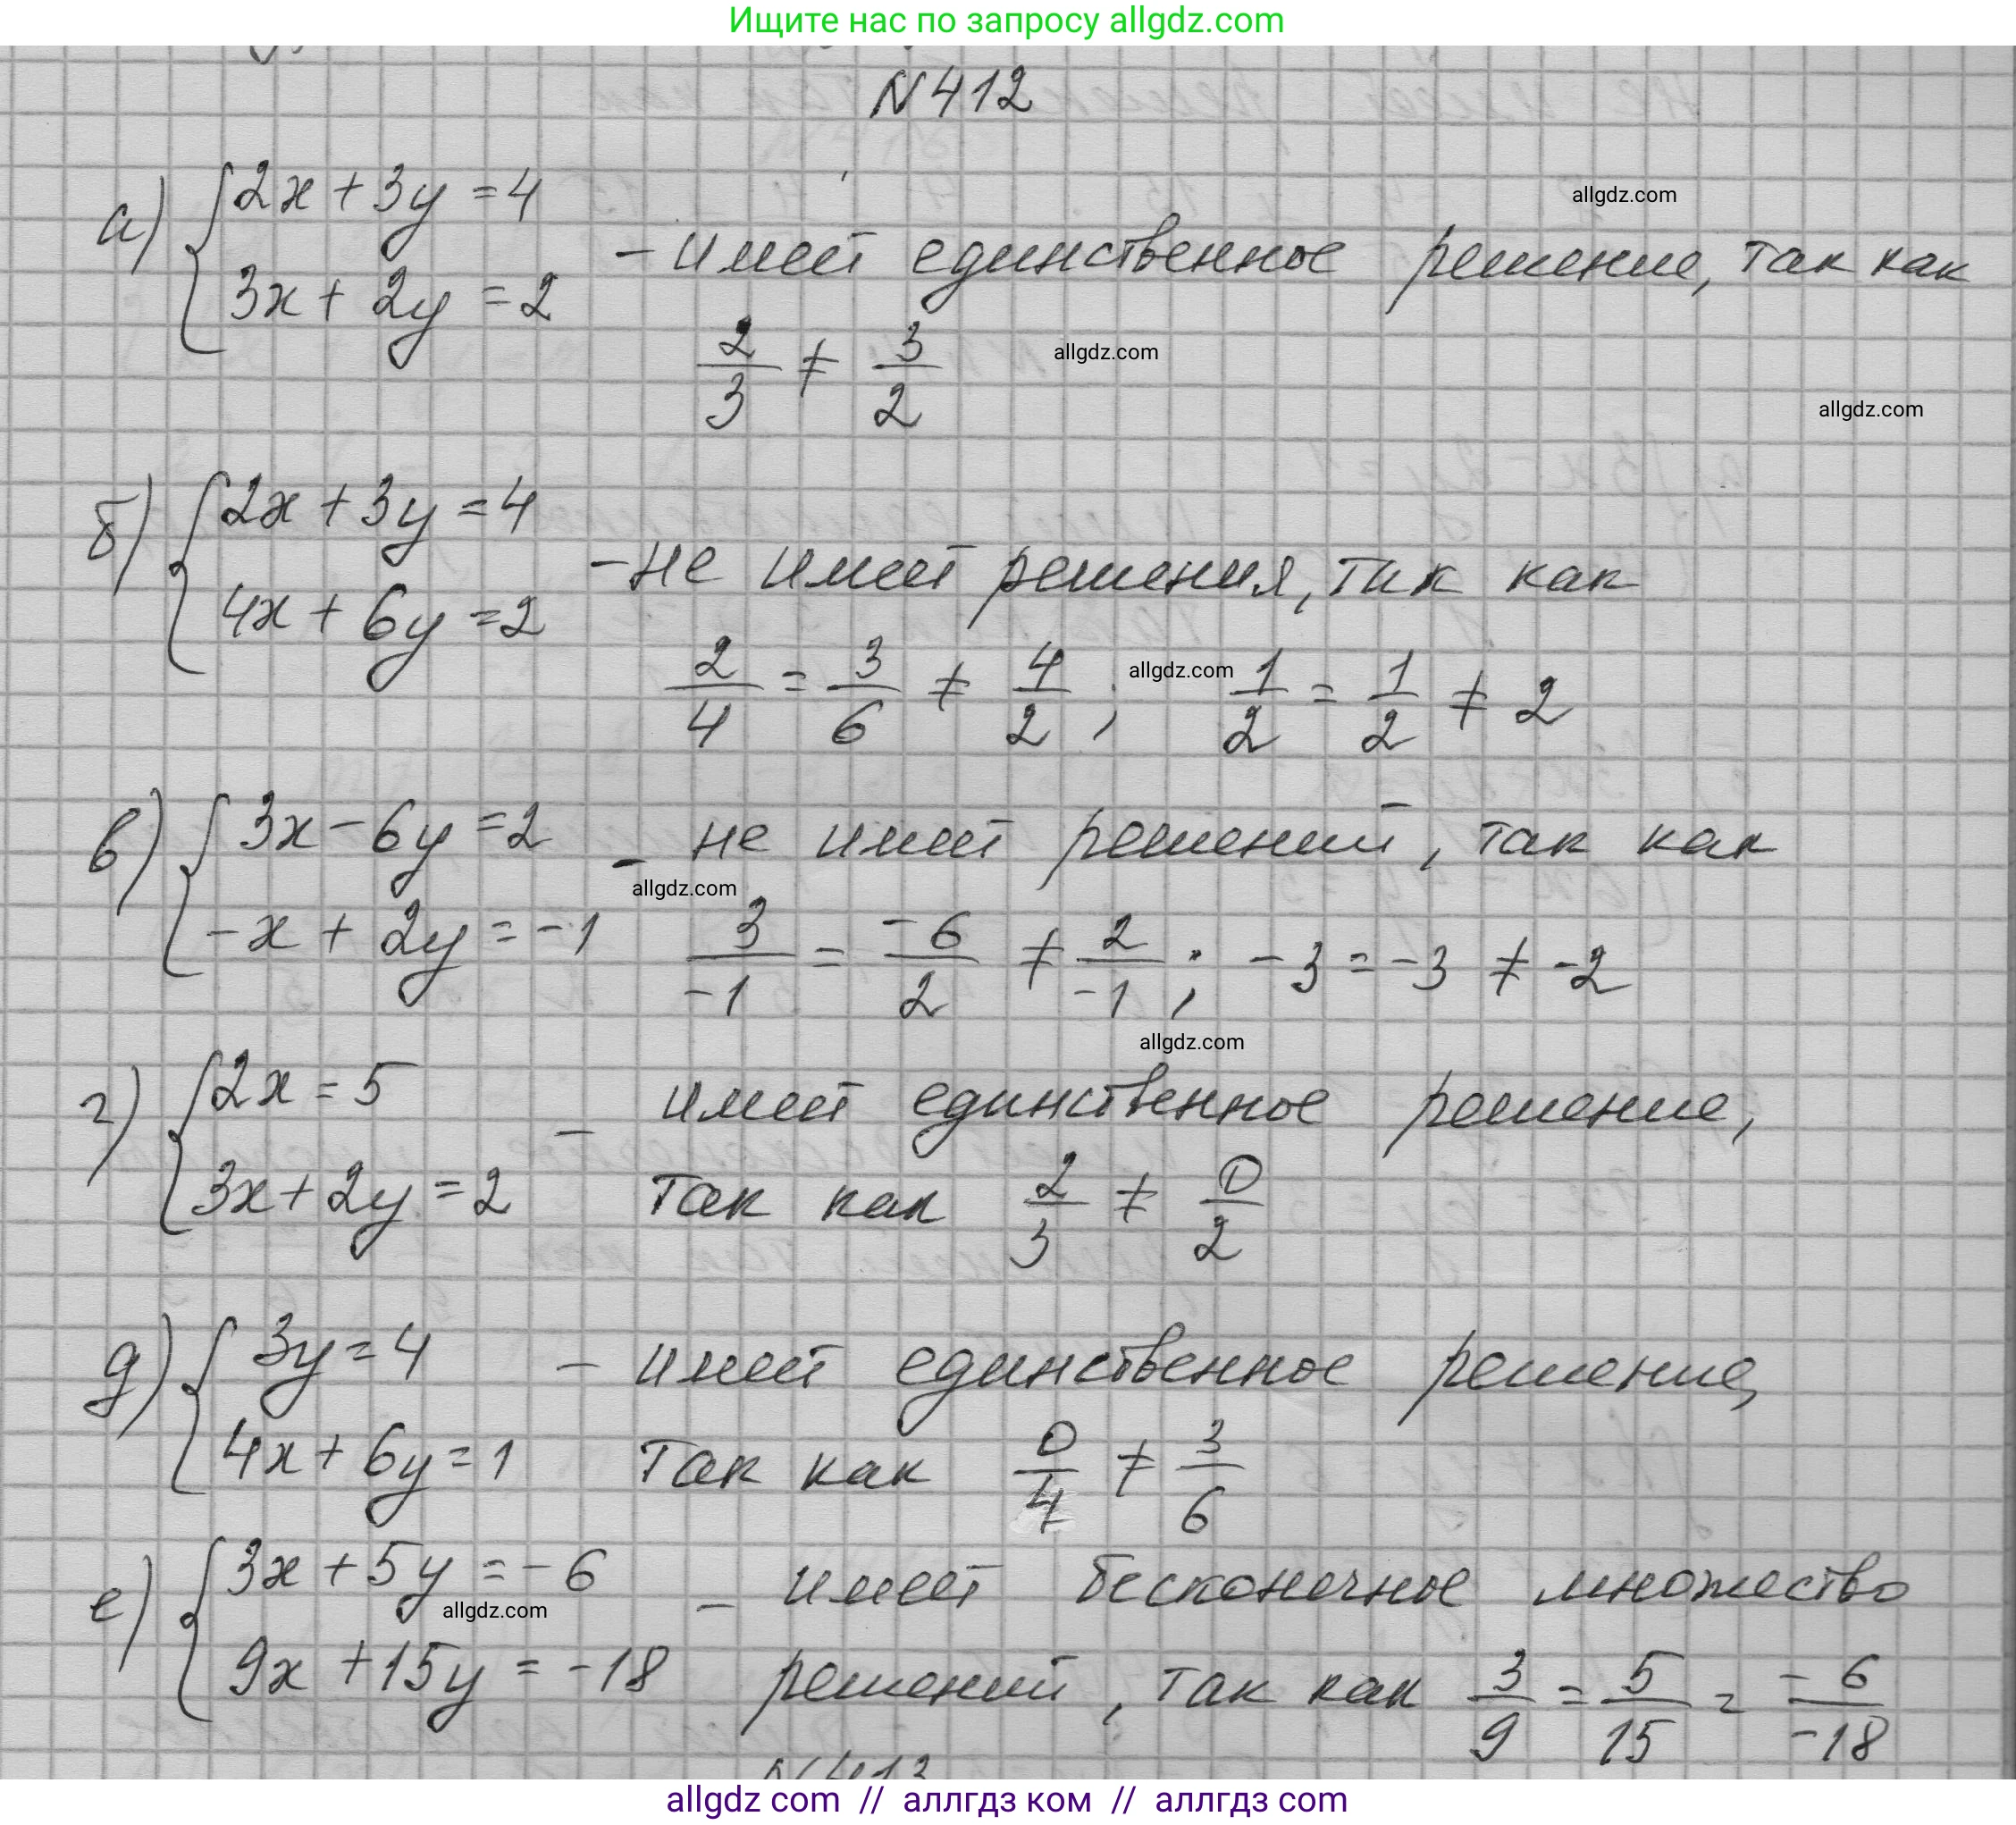 Ищите нас по запросу allgdz.com
N412
а) {2x + 3y = 4
3x + 2y = 2
- имеет единственное решение, так как
2/3 ≠ 3/2
allgdz.com
allgdz.com
allgdz.com
б) {2x + 3y = 4
4x + 6y = 2
- не имеет решения, так как
2/4 = 3/6 ≠ 4/2; 1/2 = 1/2 ≠ 2
allgdz.com
в) {3x - 6y = 2
-x + 2y = -1
- не имеет решений, так как
allgdz.com
3/-1 = -6/2 ≠ 2/-1; -3 = -3 ≠ -2
allgdz.com
г) {2x = 5
3x + 2y = 2
- имеет единственное решение,
так как 2/3 ≠ 0/2
д) {3y = 4
4x + 6y = 1
- имеет единственное решение,
так как 0/4 ≠ 3/6
е) {3x + 5y = -6
9x + 15y = -18
allgdz.com
- имеет бесконечное множество
решений, так как 3/9 = 5/15 = -6/-18
N413
allgdz com // аллгдз ком // аллгдз com